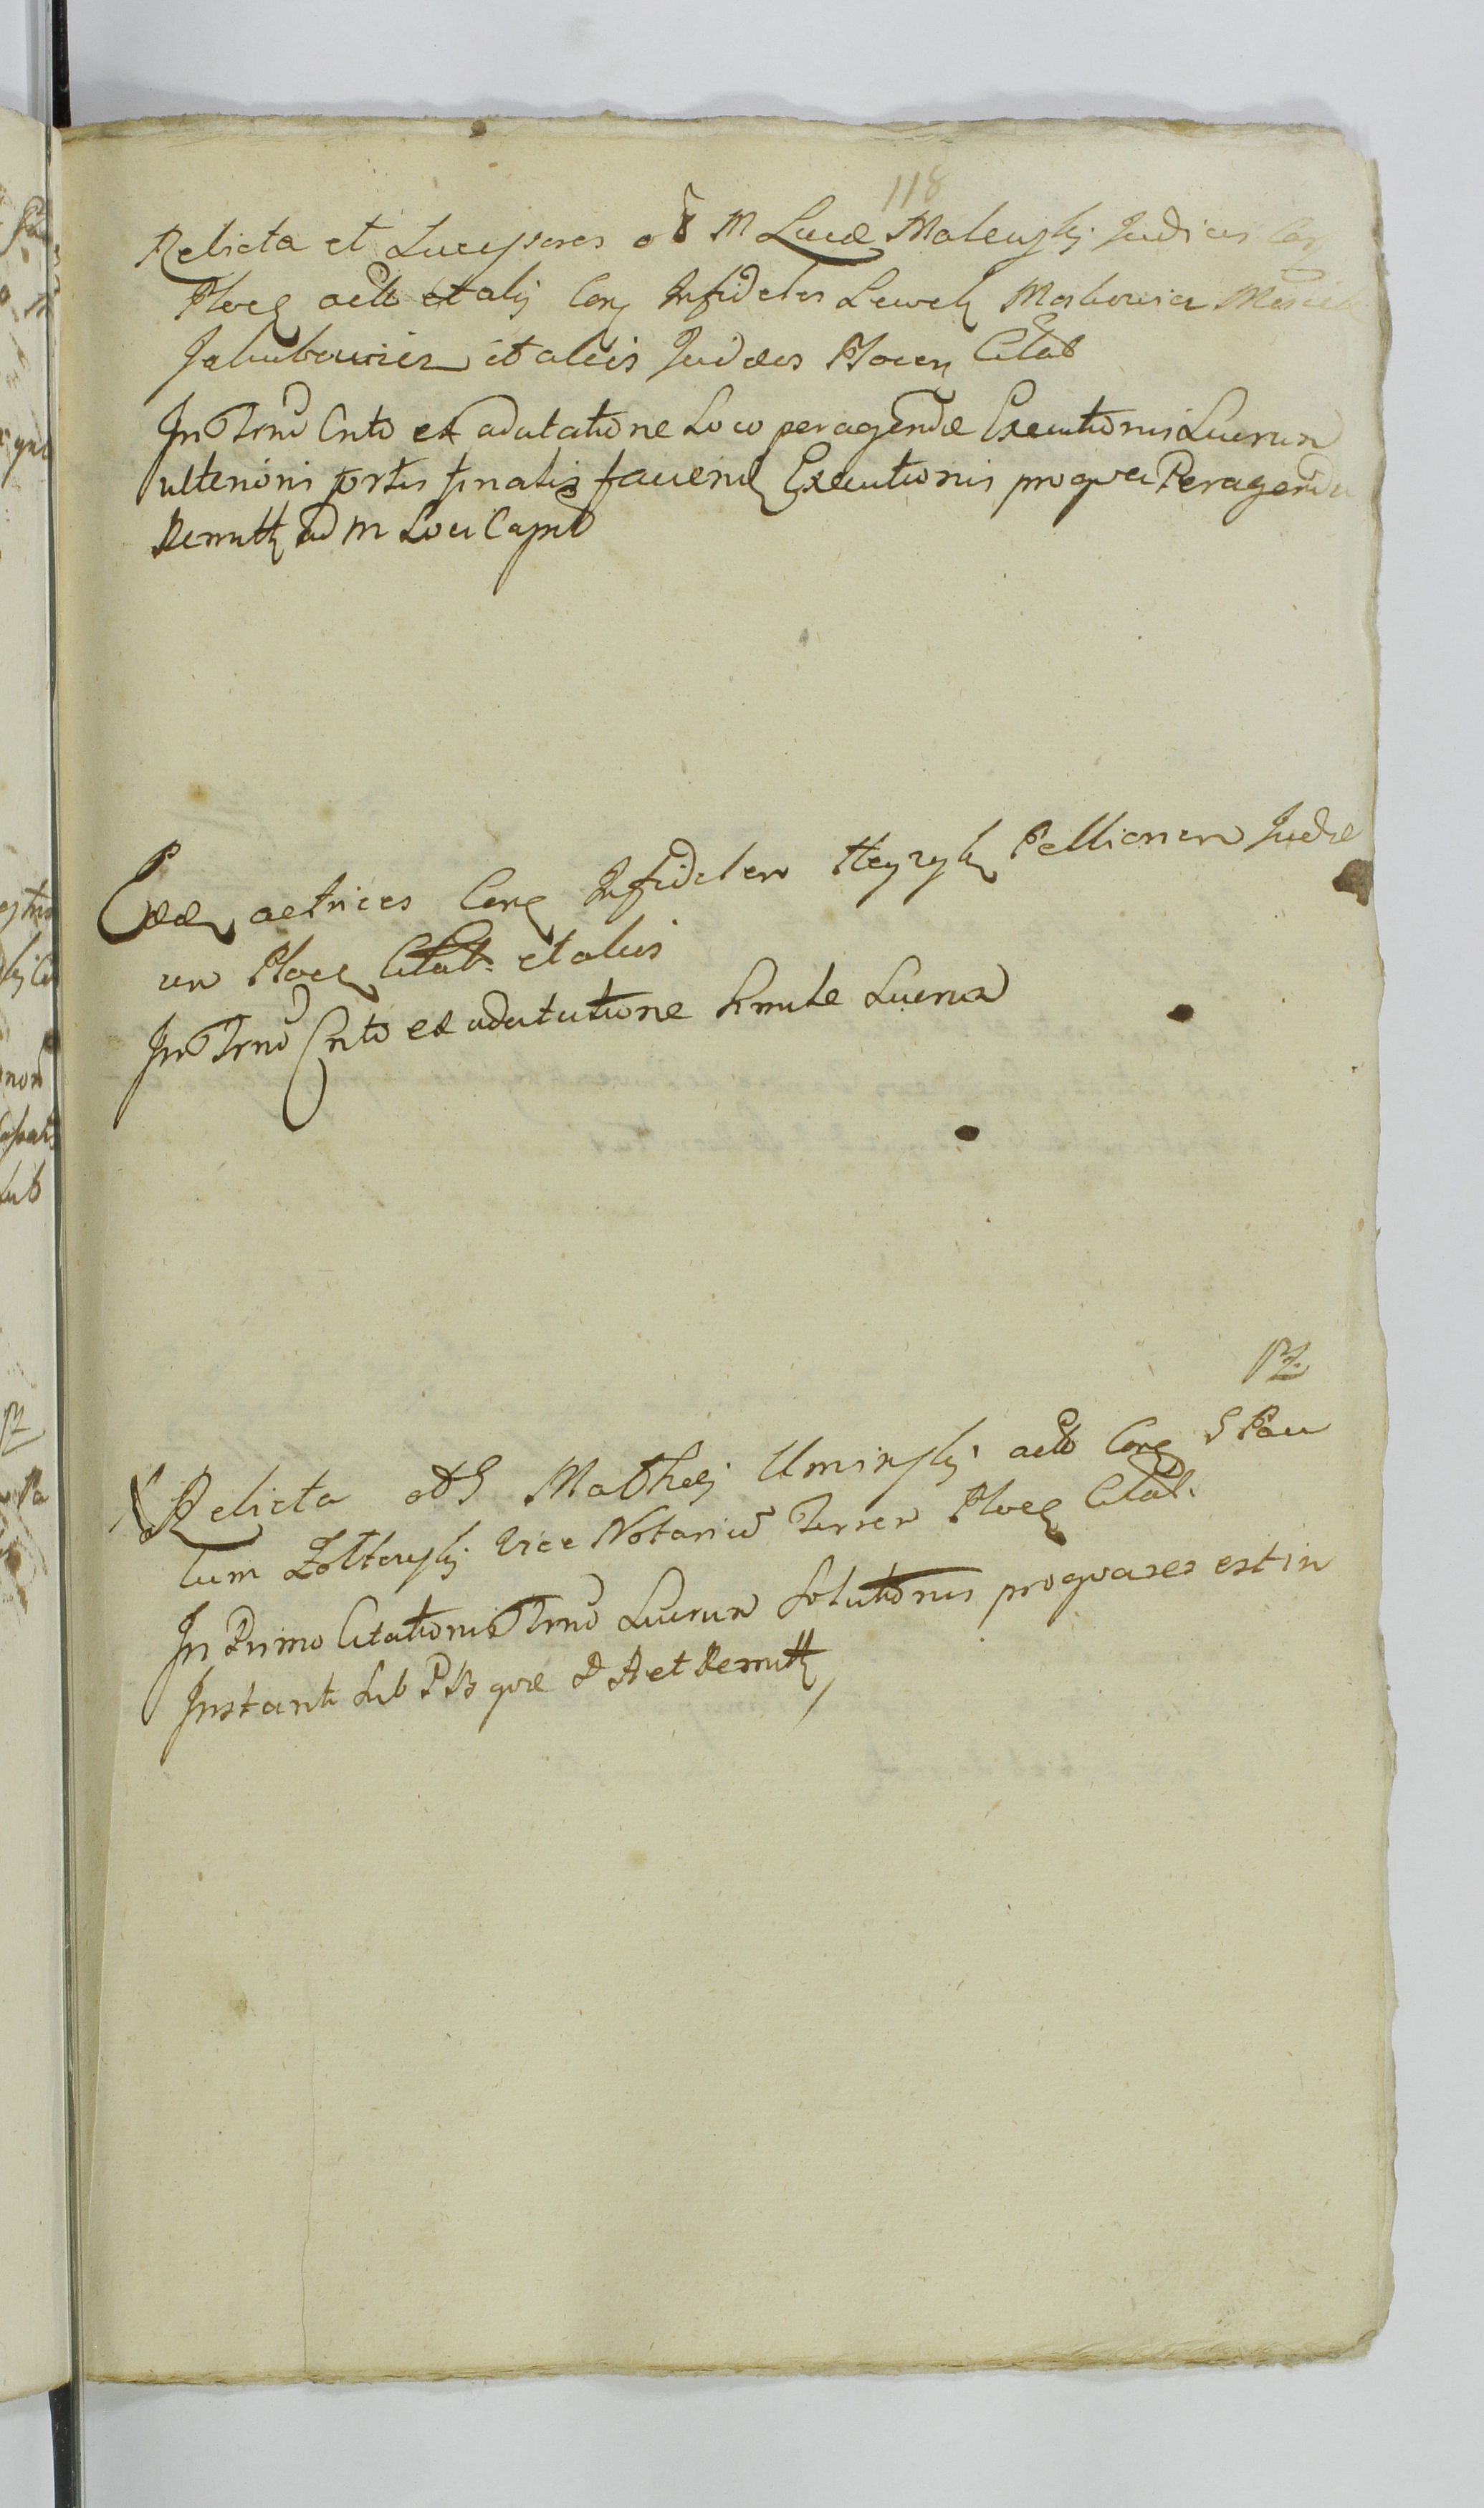 118
Relicta et Successores o M Lucæ Maleńskj Judicis Cas
Plocꝫ actt et alij Conꝫ Infideles Lewek Moskowicz
Jakubowicz et alios Judæos Plocen Citat
In Trno Cnto ex adcitatione Loco peragendæ Executionis Lucrum
ulterioris sortis finalis faciend Executionis pro qua Peragenda
Remitt ad M Loci Capit
Eædꝫ actrices Conꝫ Infidelem Pellionem Judæ
um Plocꝫ Citat et alios
In Trno Cnto ex adcitatione simile Lucrum
Pz
Relicta o S Mathæj Uminskj actt Conꝫ S Pau
lum Zołtowskj Vice Notariũ Terrer Plocꝫ Citat.
In Primo Citationis Trno Lucrum Solutionis pro qua res est in
Instanti sub PB quæ et Remitt